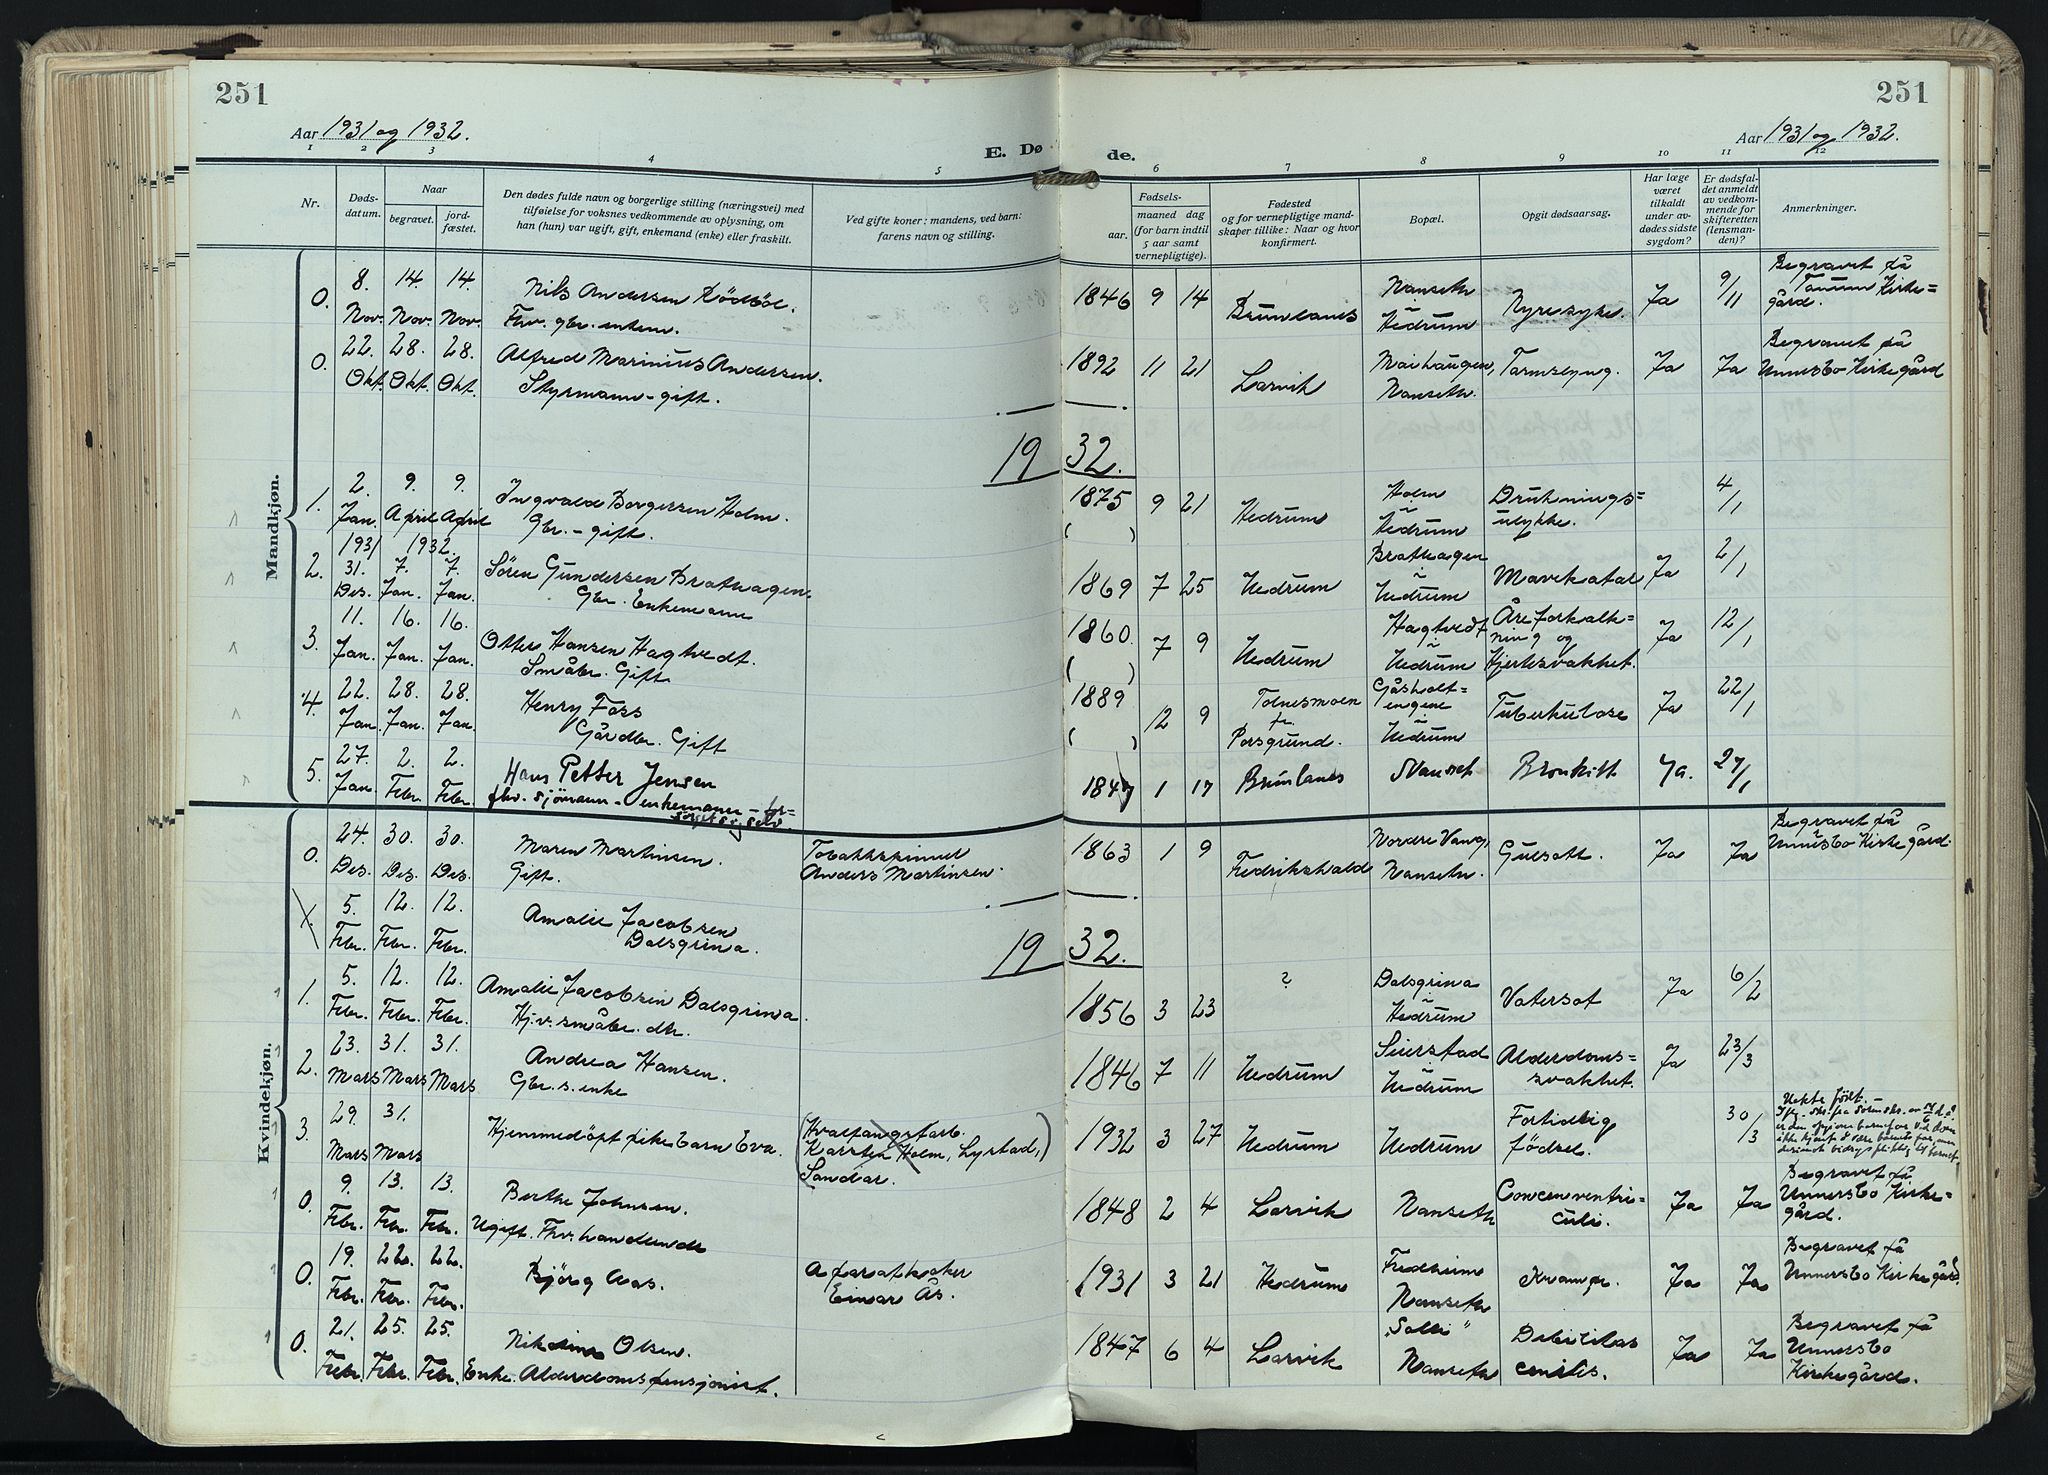 251
251
Aar 1931 og 1932.
Aar 1931 og 1932.
E. Dø de.
1 2 3 4 5 6 7 8 9 10 11 12
Nr.
Døds-
datum.
Naar
begravet.
jord-
fæstet.
Den dødes fulde navn og borgerlige stilling (næringsvei) med
tilføielse for voksnes vedkommende av oplysning, om
han (hun) var ugift, gift, enkemand (enke) eller fraskilt.
Ved gifte koner: mandens, ved barn:
farens navn og stilling.
Fødsels-
aar.
maaned dag
(for barn indtil
5 aar samt
vernepligtige).
Fødested
og for vernepligtige mand-
skaper tillike: Naar og hvor
konfirmert.
Bopæl.
Opgit dødsaarsag.
Har læge
været
tilkaldt
under av-
dødes sidste
sygdom?
Er dødsfal-
det anmeldt
av vedkom-
mende for
skifteretten
(lensman-
den)?
Anmerkninger.
Mandkjøn.
0. 8. Nov. 14. Nov. 14. Nov.
Nils Andersen Rödböl.
Fhv. gbr. enkem.
1846 9 14 Brunlanes
Nanseth
i
Hedrum
Nyresyke. Ja 9/11
Begravet på
Tanum Kirke=
gård.
0. 22. Okt. 28. Okt. 28. Okt.
Alfred Marinius Andersen.
Styrmann - gift.
1892 11 21 Larvik
Maihaugen,
Nanseth.
Tarmslyng. Ja Ja
Begravet på
Undersbo Kirkegård
19 32.
1. 2. Jan. 9. April 9. April
Ingvald Borgersen Holm.
Gbr. - gift.
1875 9 21 Hedrum
Holm
i
Hedrum
Druknings=
ulykke.
4/1
2. 1931 31. Des. 1932. 7. Jan. 7. Jan.
Sören Gundersen Brathagen.
Gbr. Enkemann
1869 7 25 Hedrum
Brathagen
i
Hedrum
Mavekatar Ja 2/1
3. 11. Jan. 16. Jan. 16. Jan.
Otter Hansen Hagtvedt.
Småbr. Gift
1860 7 9 Hedrum
Hagtvedt
i
Hedrum
Åreforkalk=
ning og
Hjertesvakhet.
Ja 12/1
4. 22. Jan. 28. Jan. 28. Jan.
Henry Foss
Gårdbr. Gift
1889 12 9
Tolnesmoen
pr.
Porsgrund.
Gåsholt=
engene
i
Hedrum
Tuberkulose Ja 22/1
5. 27. Jan. 2. Febr. 2. Febr.
Hans Petter Jensen
fhv. sjömann - enkemann - for-
sörget sig selv.
1847 1 17 Brunlanes Nanset Bronkitt Ja. 27/1
Kvindekjøn.
0. 24. Des. 30. Des. 30. Des.
Maren Martinsen.
Gift.
Tobakkspinner
Anders Martinsen.
1863 1 9 Fredrikshald
Nordre Vang,
Nanseth.
Gulsott. Ja Ja
Begravet på
Undersbo Kirkegård.
1. 5. Febr. 12. Febr. 12. Febr.
Amalie Jacobsen
Dalsgrina.
19 32.
1. 5. Febr. 12. Febr. 12. Febr.
Amalie Jacobsen Dalsgrina.
Hj.v. småbr. dtr.
1856 3 23 ?
Dalsgrina
i
Hedrum
Vatersot Ja 6/2
2. 23. Mars 31. Mars 31. Mars
Andrea Hansen.
Gbr.s. enke
1846 7 11 Hedrum
Seierstad
i
Hedrum
Alderdoms=
svakhet.
Ja 23/3
3. 29. Mars 31. Mars
Hjemmedöpt pikebarn Eva.
(Hvalfangstarb.
Karsten Holm, Lystad,
Sandar.)
1932 3 27 Hedrum Hedrum
Fortidlig
födsel.
30/3
Uekte født.
0. 9. Febr. 13. Febr. 13. Febr.
Berthe Johnsen.
Ugift. Fhv. handlende
1848 2 4 Larvik Nanseth
Cancer ventri=
culi.
Ja Ja
Begravet på
Undersbo Kirke=
gård.
0. 19. Febr. 22. Febr. 22. Febr.
Björg Aas.
Apparatkoker
Einar Ås.
1931 3 21 Hedrum
Fredheim
Nanseth
Krampe. Ja Ja
Begravet på
Undersbo Kirkegård.
0. 21. Febr. 25. Febr. 25. Febr.
Nikoline Olsen.
Enke. Alderdomspensjonist.
1847 6 4 Larvik
"Solli"
Nanseth
Debilitas
cenilis.
Ja Ja
Begravet på
Undersbo
Kirkegård.